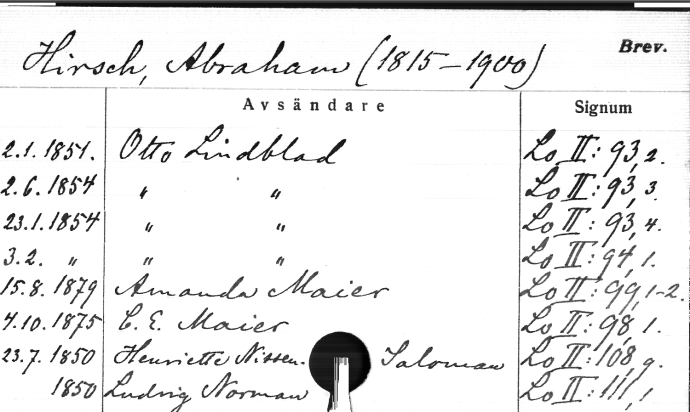 Hirsch, Abraham (1815–1900) Brev.
Avsändare Signum
2.1.1851. Otto Lindblad Lo II: 93, 2.
2.6.1854 " " Lo II: 93, 3.
23.1.1854 " " Lo II: 93, 4.
3.2. " " " Lo II: 94, 1.
15.8.1879 Amanda Maier Lo II: 99, 1-2.
4.10.1875 C. E. Maier Lo II: 98, 1.
23.7.1850 Henriette Nissen-Saloman Lo II: 108, 9.
1850 Ludvig Norman Lo II: 111, 1